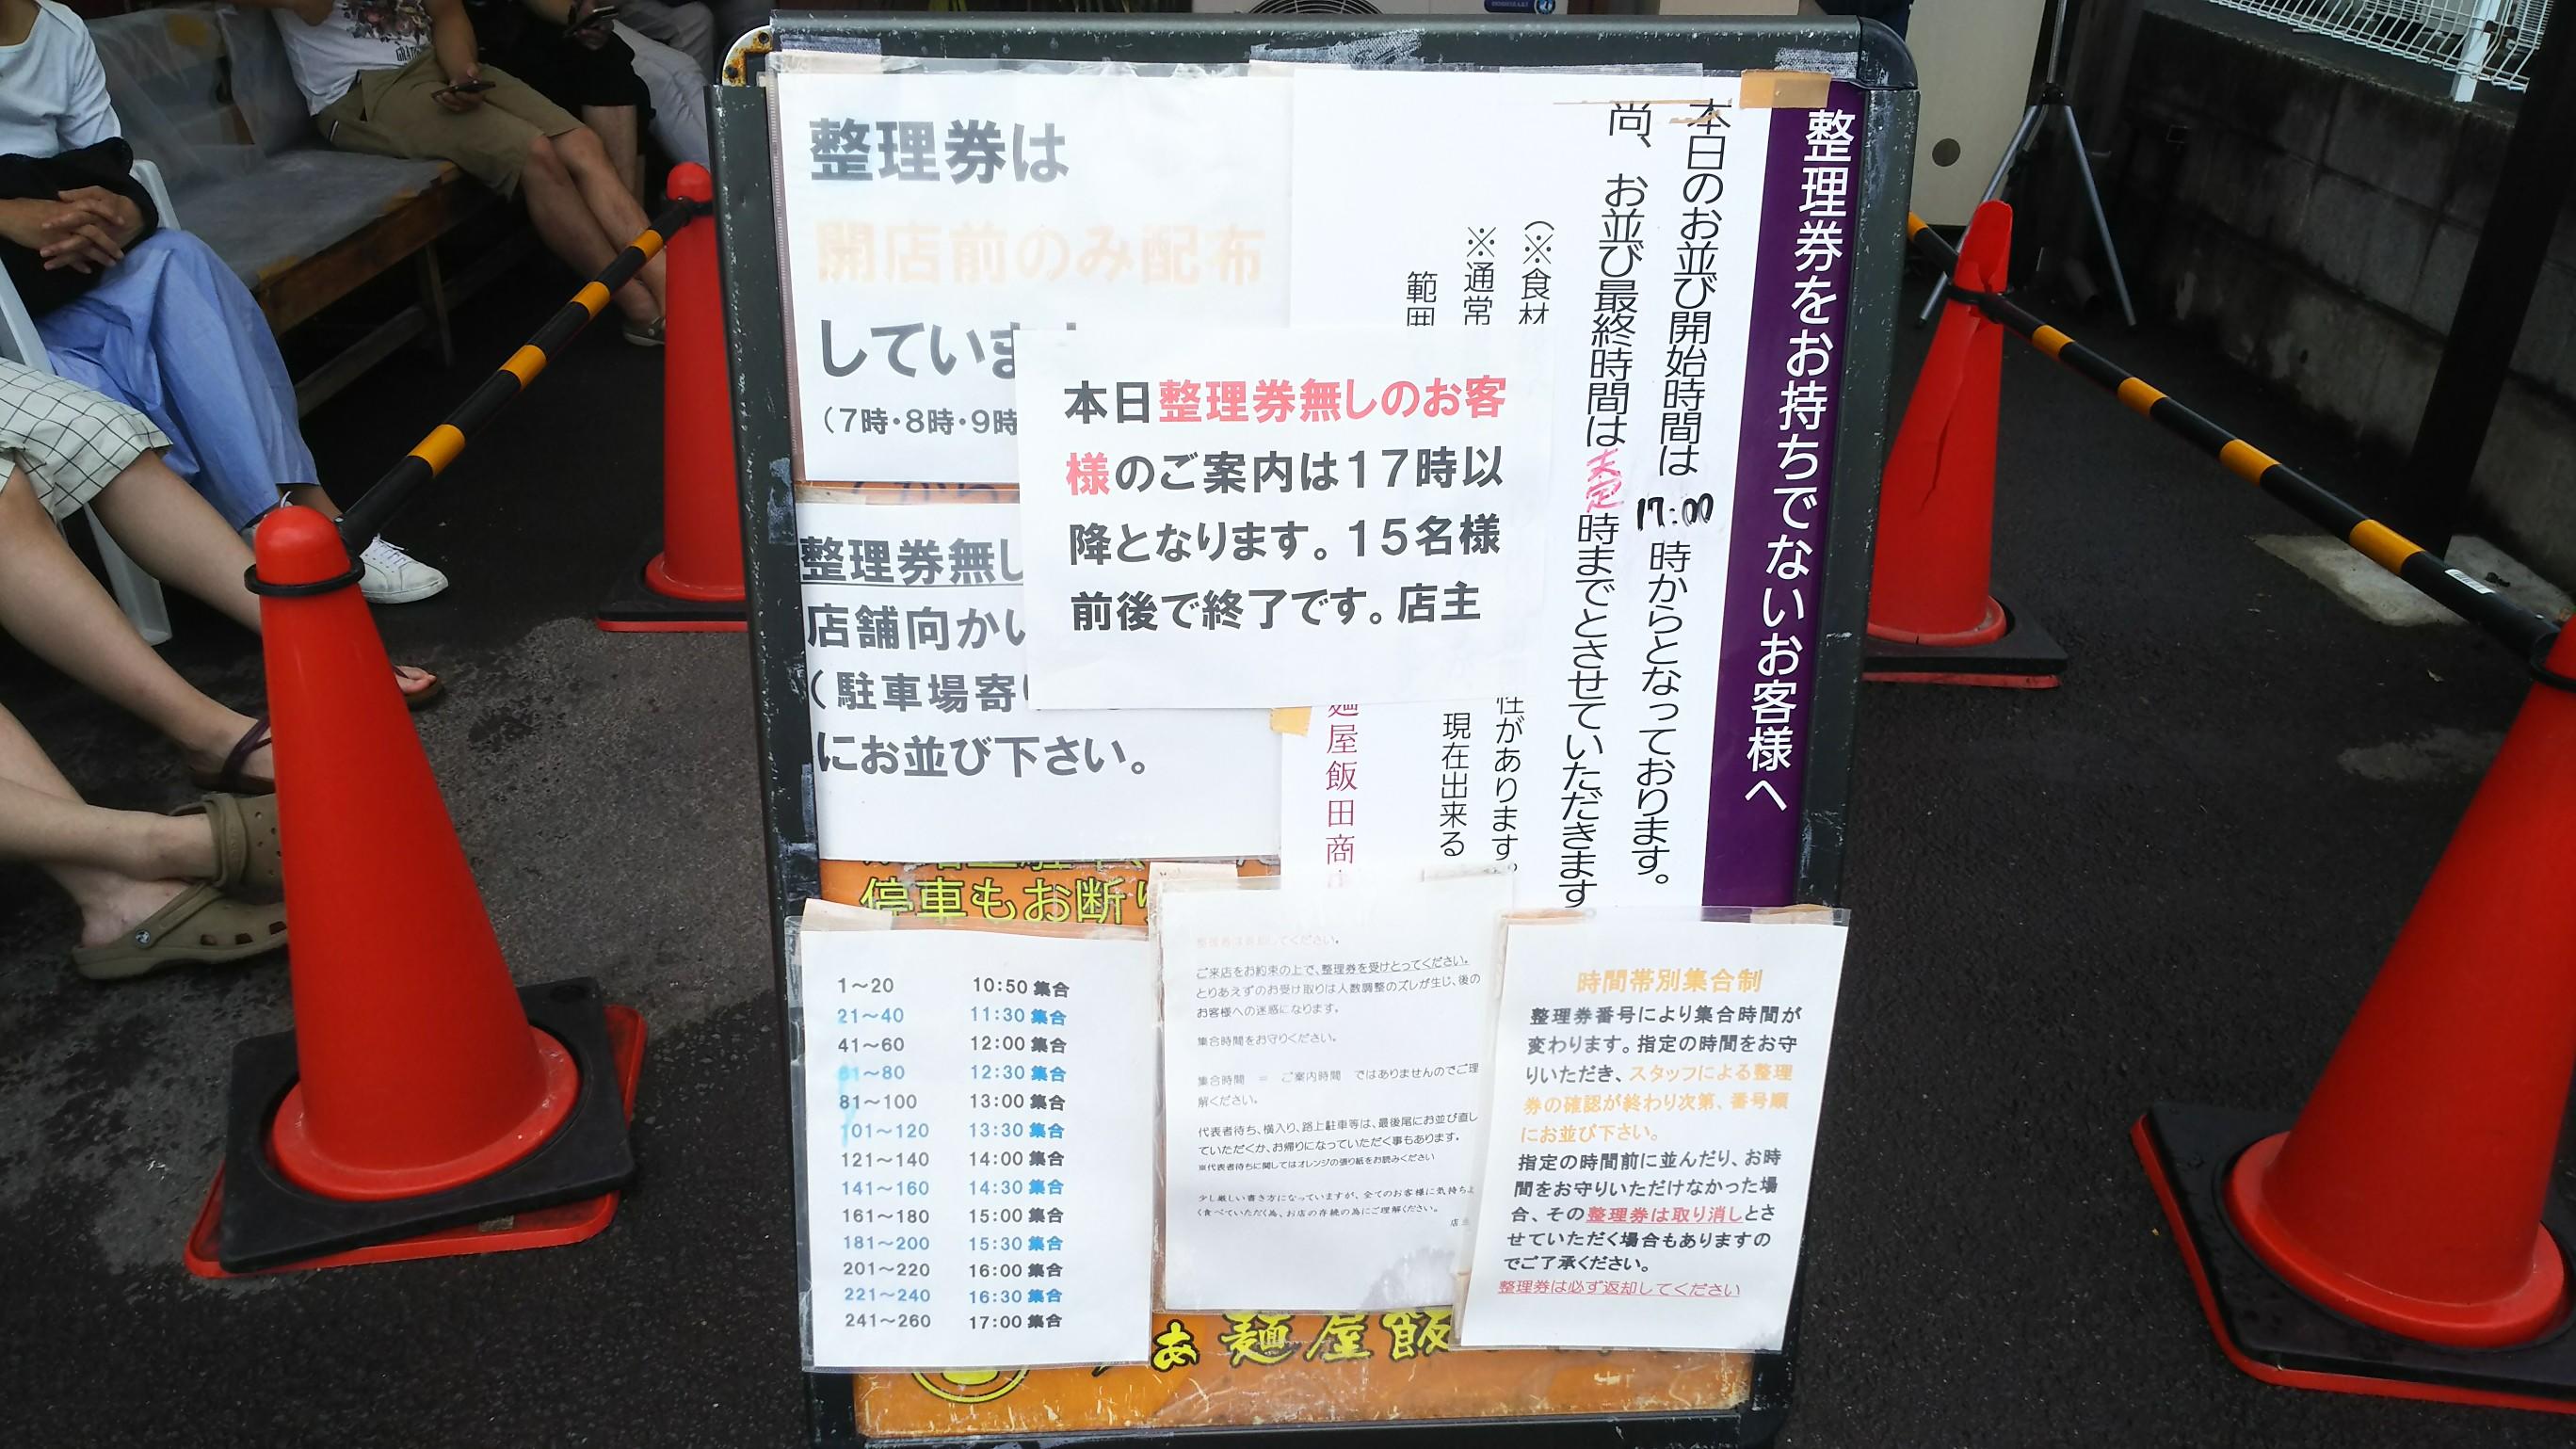 整理券は
開店前のみ配布
していま
（7時・8時・9時
整理券無し
店舗向かい
（駐車場寄り
にお並び下さい。
停車もお断り
本日整理券無しのお客
様のご案内は17時以
降となります。15名様
前後で終了です。店主
整理券をお持ちでないお客様へ
本日のお並び開始時間は 17:00 時からとなっております。
尚、お並び最終時間は未定時までとさせていただきます
（※食材
性があります。
※通常
現在出来る
範囲
麺屋飯田商
1～20 10:50 集合
21～40 11:30 集合
41～60 12:00 集合
61～80 12:30 集合
81～100 13:00 集合
101～120 13:30 集合
121～140 14:00 集合
141～160 14:30 集合
161～180 15:00 集合
181～200 15:30 集合
201～220 16:00 集合
221～240 16:30 集合
241～260 17:00 集合
ご来店をお約束の上で、整理券を受けとってください。
とりあえずのお受け取りは人数調整のズレが生じ、後の
お客様への迷惑になります。
集合時間をお守りください。
集合時間 ＝ ご案内時間 ではありませんのでご理
解ください。
代表者待ち、横入り、路上駐車等は、最後尾にお並び直し
ていただくか、お帰りになっていただく事もあります。
※代表者待ちに関してはオレンジの張り紙をお読みください
少し厳しい書き方になっていますが、全てのお客様に気持ちよ
く食べていただく為、お店の存続の為にご理解ください。
店主
時間帯別集合制
整理券番号により集合時間が
変わります。指定の時間をお守
りいただき、スタッフによる整理
券の確認が終わり次第、番号順
にお並び下さい。
指定の時間前に並んだり、お時
間をお守りいただけなかった場
合、その整理券は取り消しとさ
せていただく場合もありますの
でご了承ください。
整理券は必ず返却してください
麺屋飯